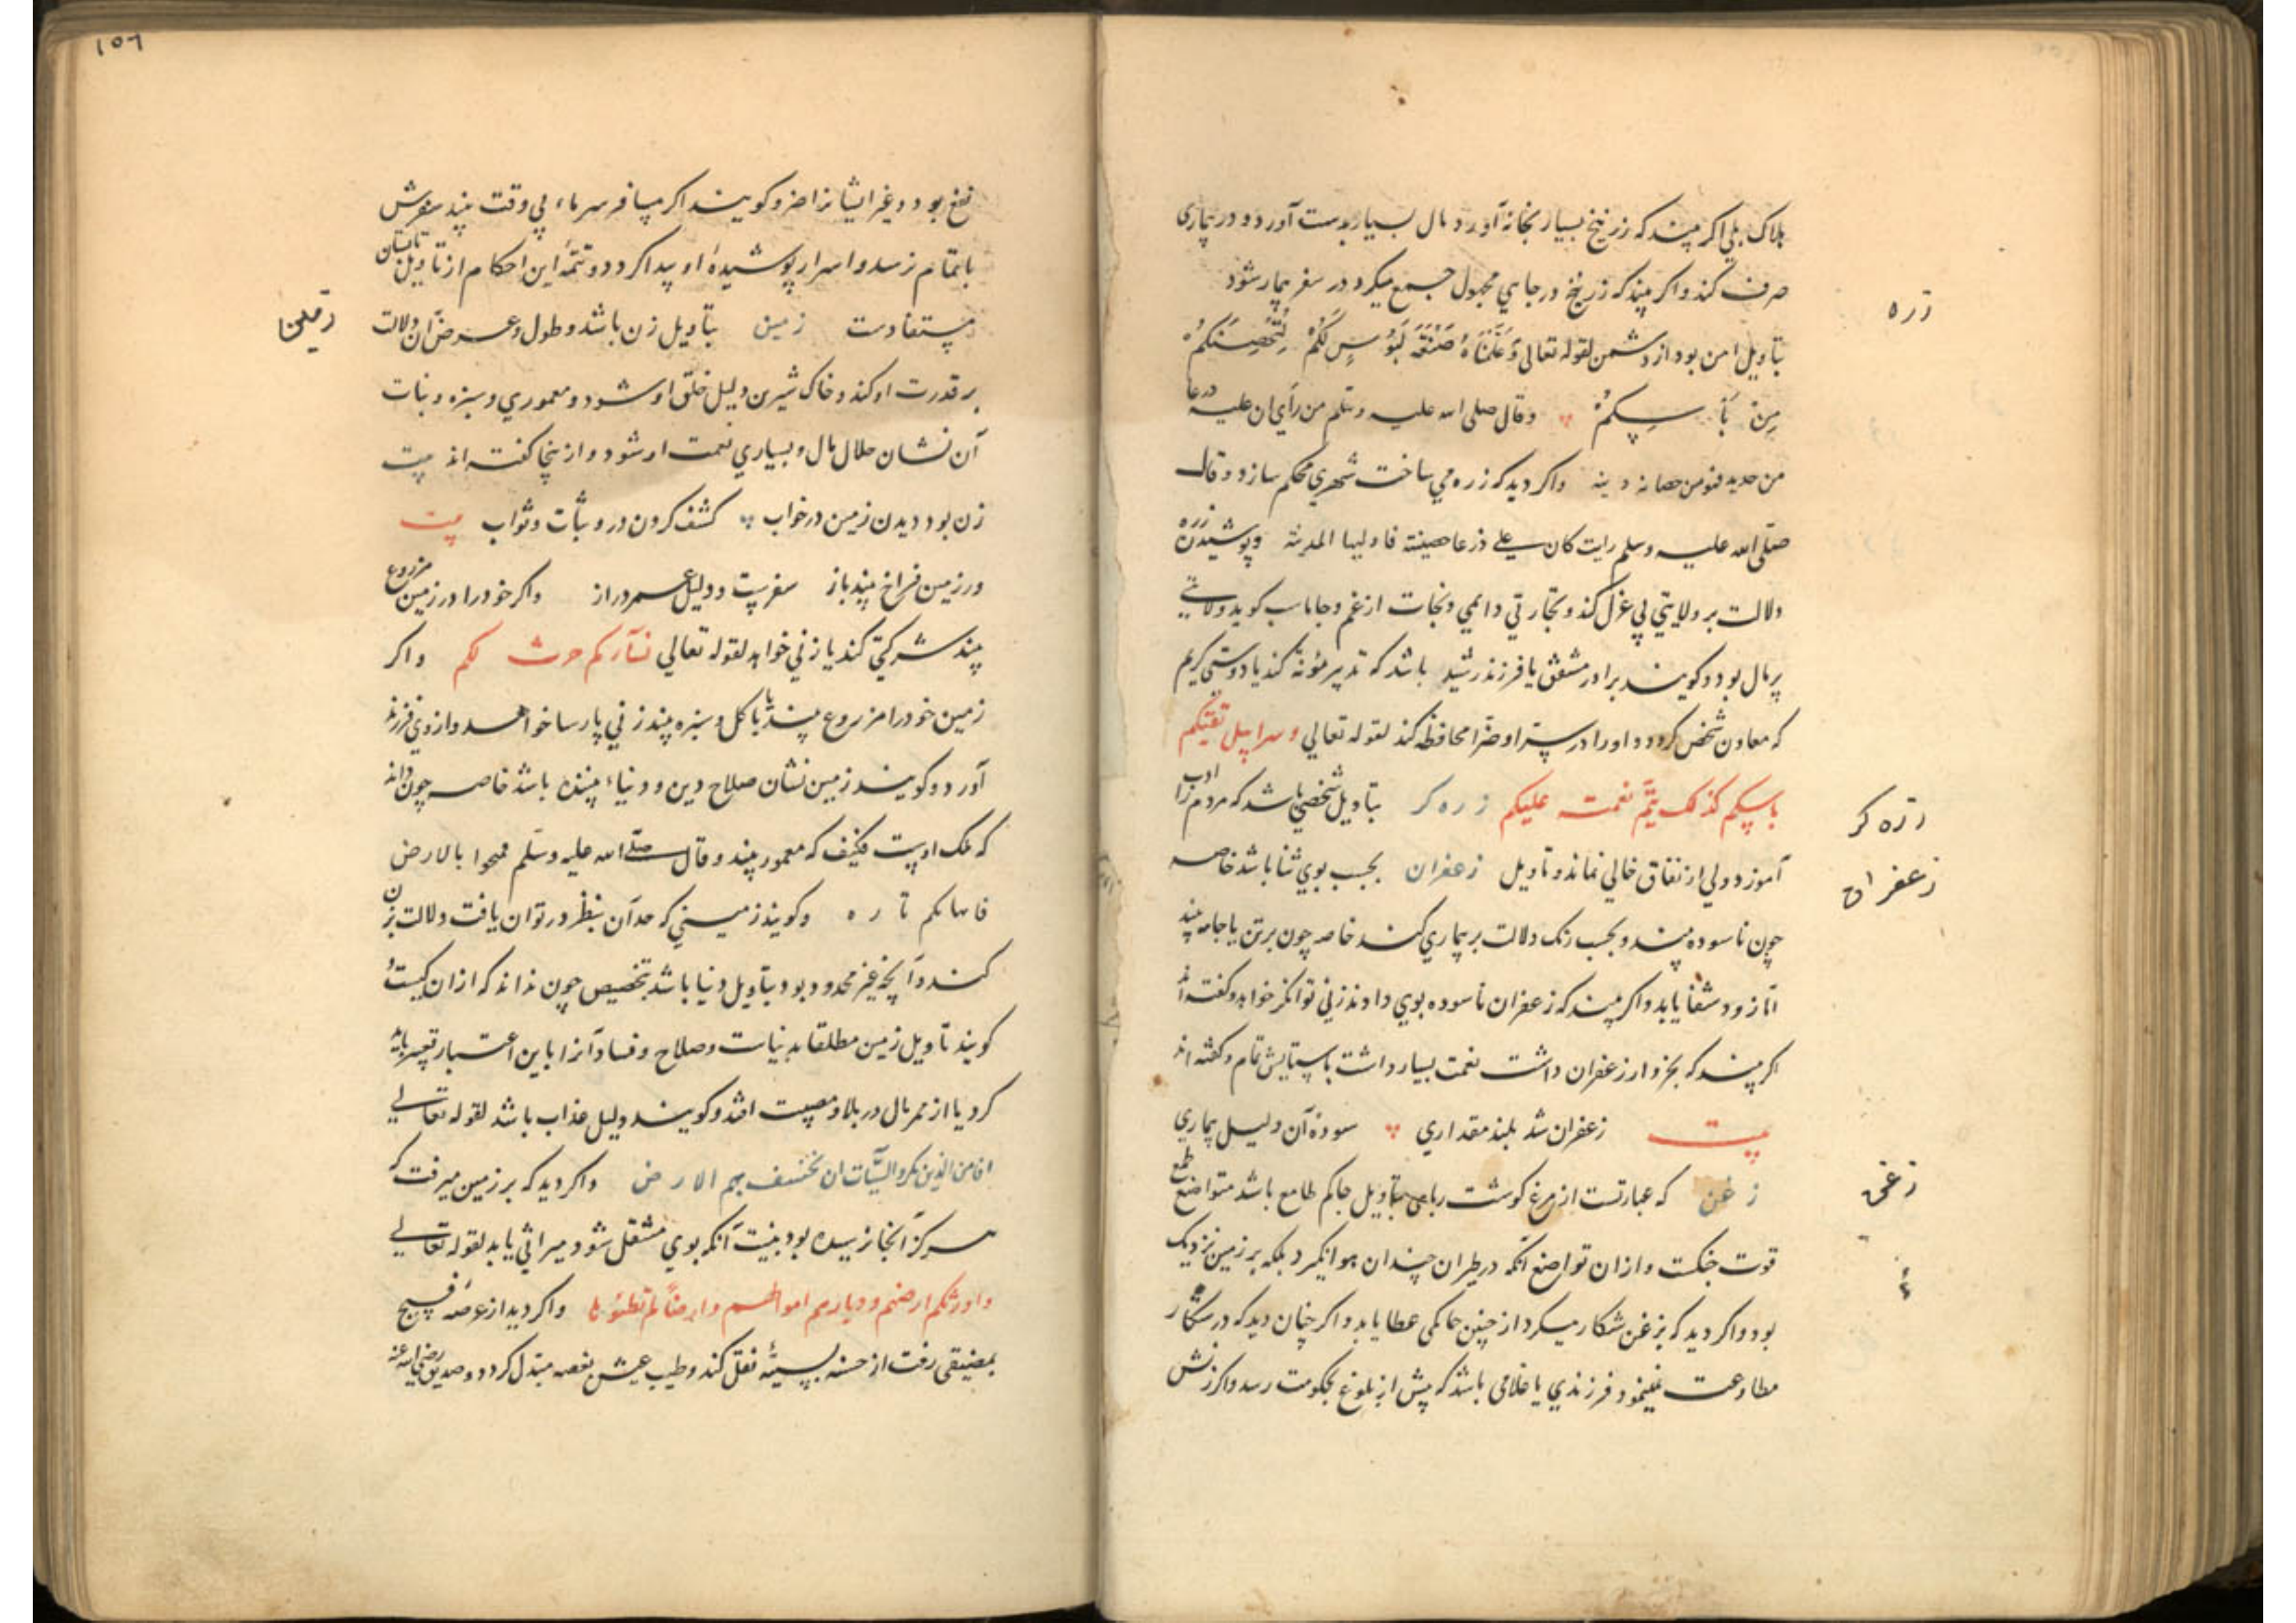 هلاک بلی اکر بیند که زرنیخ بسیار بخانه آورد مال بسیار بدست آورد و در بیماری
صرف کند و اکر بیند که زرنیخ در جایی مجهول جمع میکرد در سفر بیمار شود
زره
بتاویل امن بود از دشمن لقوله تعالی وَعَلَّمْنَاهُ صَنْعَةَ لَبُوسٍ لَكُمْ لِتُحْصِنَكُمْ
مِنْ بَأْسِكُمْ وقال صلی الله علیه وسلم من رأی ان علیه درعا
من حدید فهو من حصانة دینه واکر دید که زره می ساخت شهری محکم سازد وقال
صلی الله علیه وسلم رایت کان علی درعا حصینة فاولیها المدینة وپوشیدن زره
دلالت بر ولایتی بی عزل کند و تجارتی دایمی و نجات از غم و جاماسب کوید ولایتی
پر مال بود و کویند برادر مشفق یا فرزند رشید باشد که تدبیر مؤنه کند یا دوستی کریم
که معاون شخص کردد و او را در سترا و ضرا محافظه کند لقوله تعالی وسرابیل تقیکم
باسکم کذلک یتم نعمته علیکم زره کر بتاویل شخصی باشد که مردم را ادب
زره کر
آموزد ولی از نفاق خالی نماند و تاویل زعفران بحسب بوی ثنا باشد خاصه
زعفران
چون ناسوده بیند و بحسب رنک دلالت بر بیماری کند خاصه چون بر تن یا جامه بیند
اما زود شفا یابد و اکر بیند که زعفران ناسوده بوی دادند زنی توانکر خواهد و کفته اند
اکر بیند که بخروار زعفران داشت نعمت بسیار داشت باستایش تمام و کفته اند
بیت زعفران شد بلند مقداری سوده آن دلیل بیماری
زغن که عبارتست از مرغ کوشت ربای بتاویل حاکم طامع باشد متواضع طمع
زغن
قوت جنکست و از ان تواضع انکه در طیران چندان هوا نکیرد بلکه بر زمین نزدیک
بود و اکر دید که بزغن شکار میکرد از چنین حاکمی عطا یابد و اکر چنان دید که در شکار
مطاوعت مینمود فرزندی یا غلامی باشد که پیش از بلوغ بحکومت رسد و اکر زنش
۱۵۶
نفع بود و غیر ایشانرا ضر و کویند اکر مسافر سرماء بی وقت بیند سفرش
باتمام نرسد و اسرار پوشیده او پیدا کردد و تتمه این احکام از تاویل تابستان
مستفادست زمین بتاویل زن باشد و طول و عرض آن دلالت
زمین
بر قدرت او کند و خاک شیرین دلیل خلق او شود و معموری و سبزه و نبات
آن نشان حلال مال و بسیاری نعمت او شود و از ینجا کفته اند بیت
زن بود دیدن زمین در خواب کشف کردن درو ثبات و ثواب بیت
ور زمین فراخ بیند باز سفریست و دلیل عمر دراز واکر خود را در زمین مزروع
بیند شرکتی کند یا زنی خواهد لقوله تعالی نساؤکم حرث لکم واکر
زمین خود را مزروع بیند یا با کل و سبزه بیند زنی پارسا خواهد و از وی فرزند
آورد و کویند زمین نشان صلاح دین و دنیاء بیننده باشد خاصه چون داند
که ملک اوست فکیف که معمور بیند وقال صلی الله علیه وسلم تمسحوا بالارض
فانها بکم بارة وکویند زمینی که حد آن بنظر در توان یافت دلالت بر زن
کند و آنچه غیر محدود بود بتاویل دنیا باشد بتخصیص چون نداند که از ان کیست و
کویند تاویل زمین مطلقا به نیات و صلاح و فساد آنرا باین اعتبار تعبیر باید
کرد یا از ممر مال در بلا و مصیبت افتد و کویند دلیل عذاب باشد لقوله تعالی
افامن الذین مکروا السیئات ان یخسف بهم الارض واکر دید که بر زمین میرفت که
هرکز آنجا نرسیده بود به نیت آنکه بوی منتقل شود میراثی یابد لقوله تعالی
واورثکم ارضهم ودیارهم اموالهم وارضا لم تطئوها واکر دید از عرصه فسیح
بمضیقی رفت از حسنه بسیئه نقل کند و طیب عیش بغصه مبدل کردد و صدیق رضی الله عنه